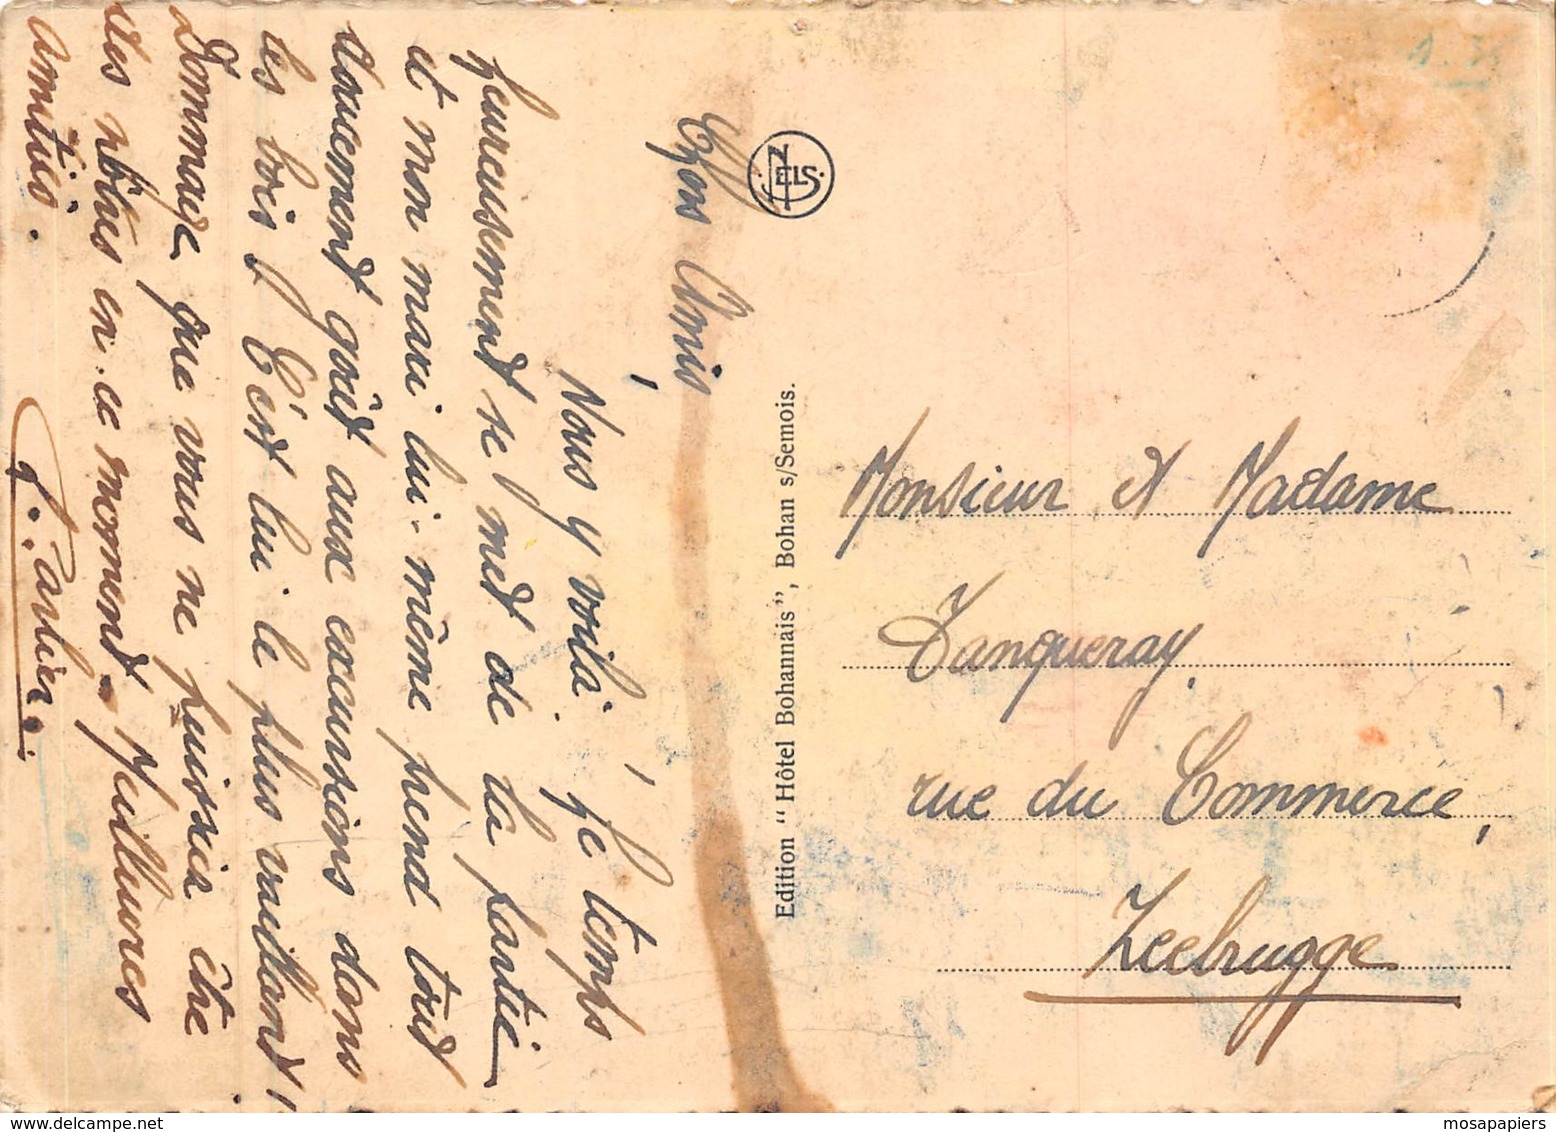 Chers Amis,
Nous y voilà! Le temps
heureusement se met de la partie
et mon mari lui-même prend tout
doucement goût aux excursions dans
les bois! C'est lui le plus vaillant!
Dommage que vous ne puissiez être
des nôtres en ce moment. Meilleures
amitiés.
Carlier.
NELS
Edition "Hôtel Bohannais", Bohan s/Semois.
Monsieur et Madame
Tanqueray,
rue du Commerce,
Zeebrugge
mosapapiers